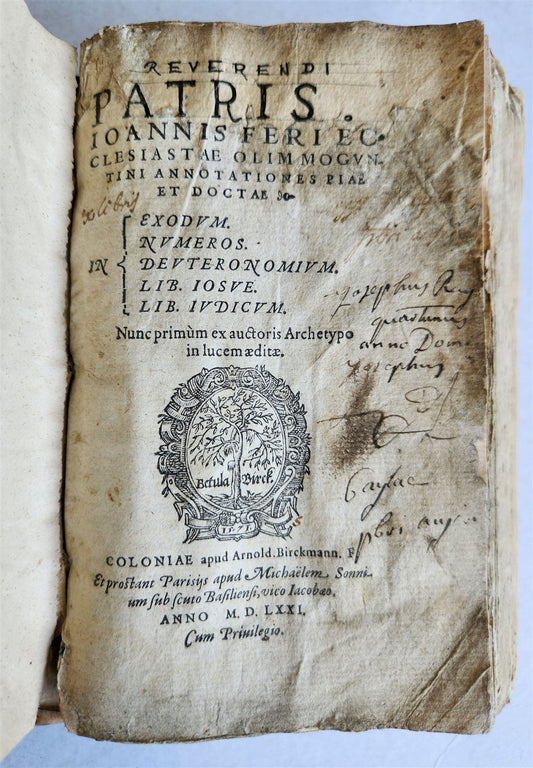 REVERENDI
PATRIS.
IOANNIS FERI EC-
CLESIASTAE OLIM MOGVN-
TINI ANNOTATIONES PIAE
ET DOCTAE
ex libris
EXODVM.
NVMEROS.
IN DEVTERONOMIVM.
LIB. IOSVE.
LIB. IVDICVM.
Nunc primùm ex auctoris Archetypo
in lucem æditæ.
Josephus
anno Domini
Josephus
Betula Birck.
1571.
COLONIAE apud Arnold. Birckmann. F
Et prostant Parisijs apud Michaëlem Sonni-
um sub scuto Basiliensi, vico Iacobæo.
ANNO M. D. LXXI.
Cum Priuilegio.